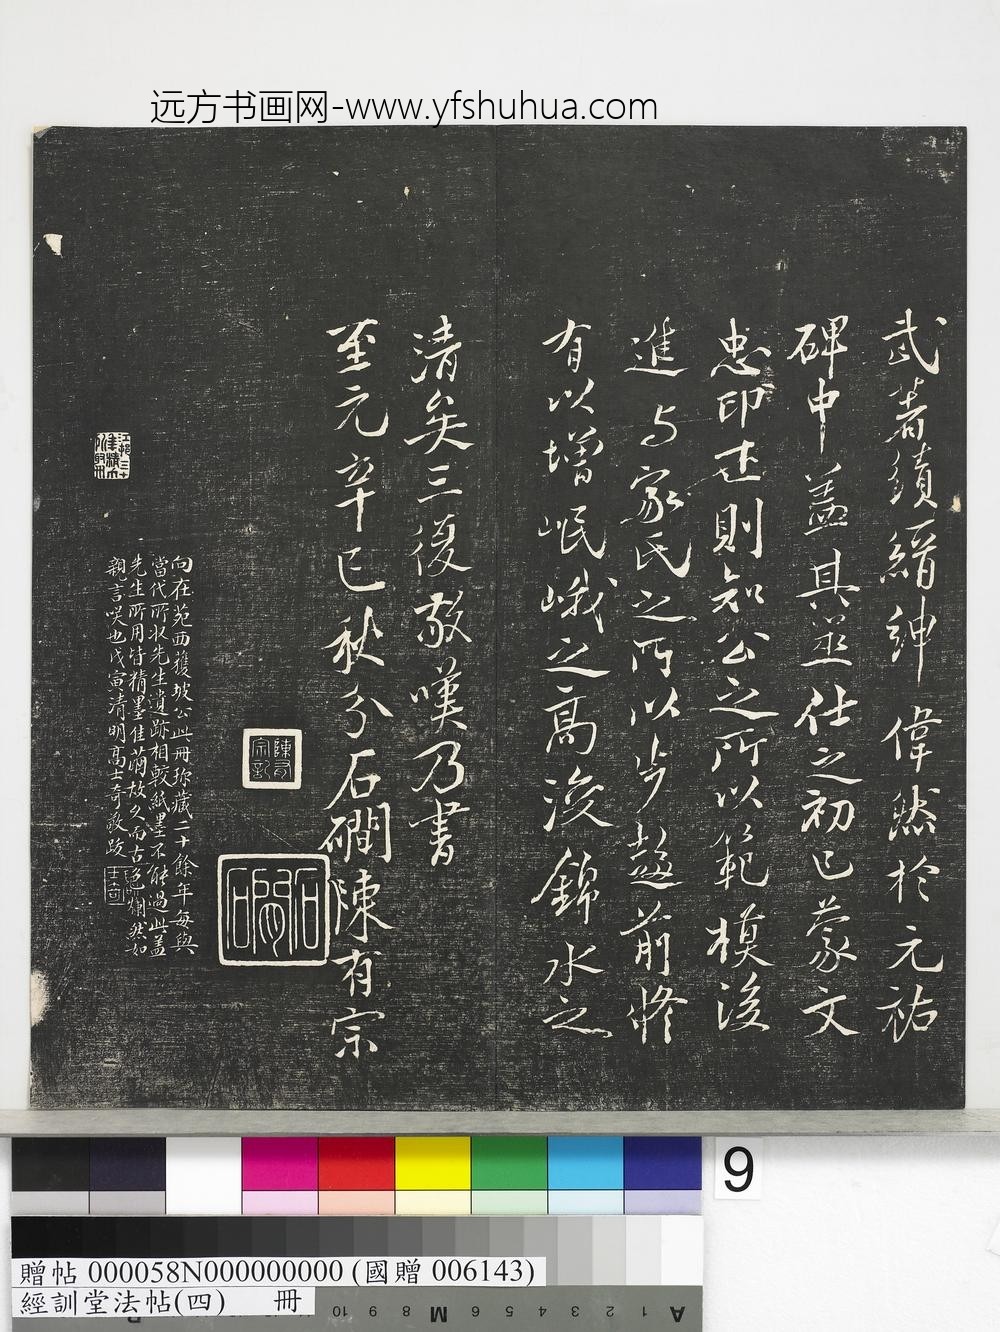 远方书画网-www.yfshuhua.com
武著績縉紳偉然於元祐
碑中盖其筮仕之初已蒙文
忠印可則知公之所以範模後
進与家氏之所以步趍前修
有以增岷峨之高浚錦水之
清矣三復敬嘆乃書
至元辛巳秋分石磵陳有宗
陳有宗記
石磵
向在苑西獲坡公此冊珍藏二十餘年每與
當代所收先生遺跡相較紙墨不能過此盖
先生所用皆精墨佳萠故久而古色爛然如
親言咲也戊寅清明高士奇敬跋
士奇
9
贈帖 000058N000000000 (國贈 006143)
經訓堂法帖(四) 冊
A 1 2 3 4 5 6 M 8 9 10